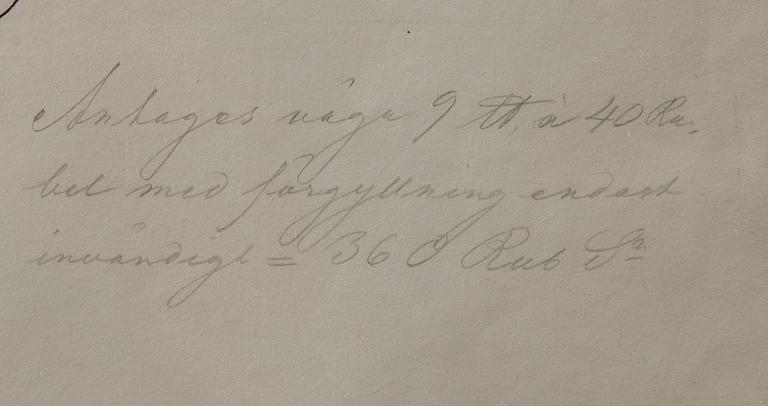 Antages väga 9 ℔, à 40 Ru-
bel med förgyllning endast
invändigt = 360 Rub Sr